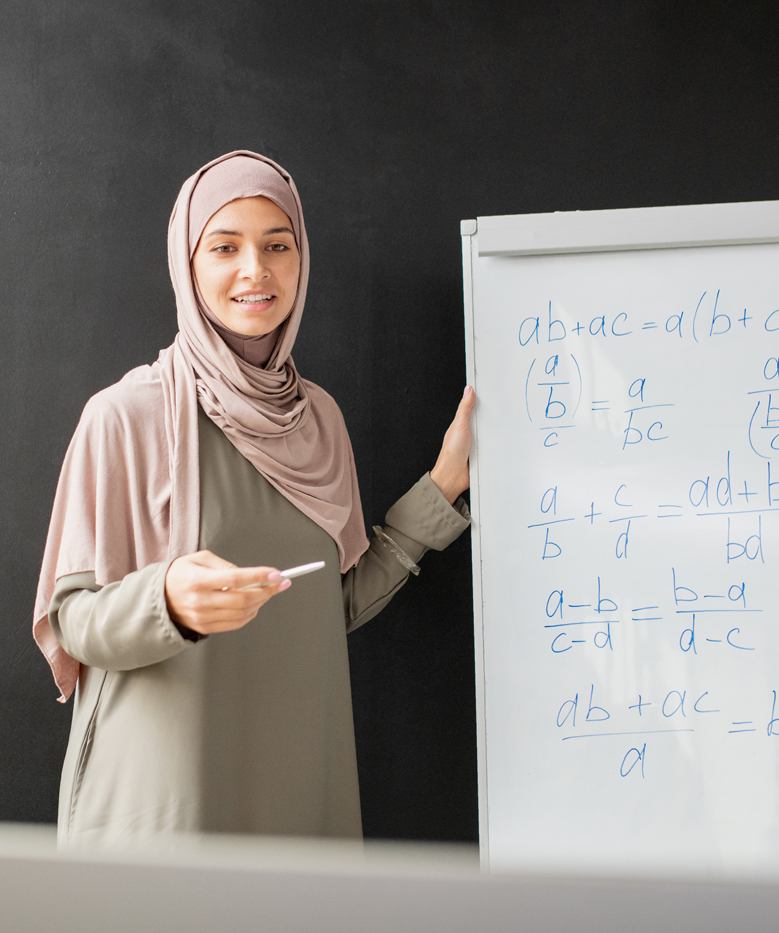 ab+ac=a(b+c
(a/b)/c = a/bc a/(b/c
a/b + c/d = ad+b/bd
a-b/c-d = b-a/d-c
ab+ac/a = b